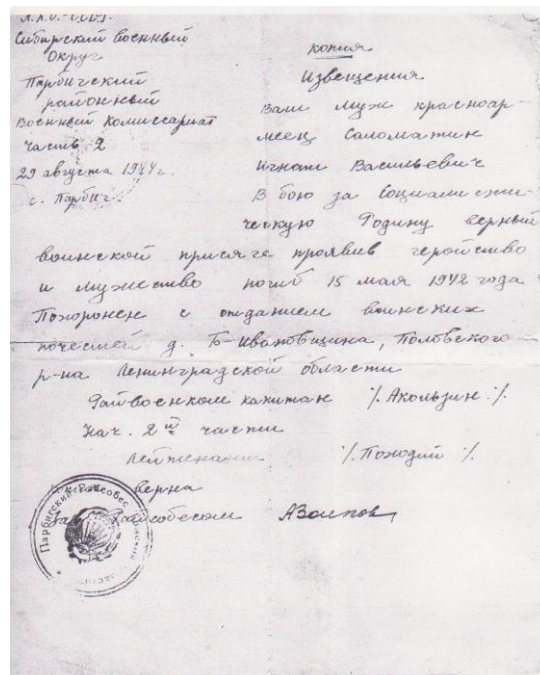 Сибирский военный
Округ
Парбигский
районный
Военный Комиссариат
часть 2
29 августа 1944г.
с. Парбиг.
копия
Извещения
Ваш муж красноар-
меец Саломатин
Игнат Васильевич
В бою за Социалисти-
ческую Родину верный
воинской присяге проявив геройство
и мужество погиб 15 мая 1942 года
Похоронен с отданием воинских
почестей д. Б-Ивановщина, Половского
р-на Ленинградской области
Райвоенком капитан /.Акользин./.
Нач. 2й части
лейтенант /.Походий /.
верна
Зав Райсобесом
Парбигский Райсобес